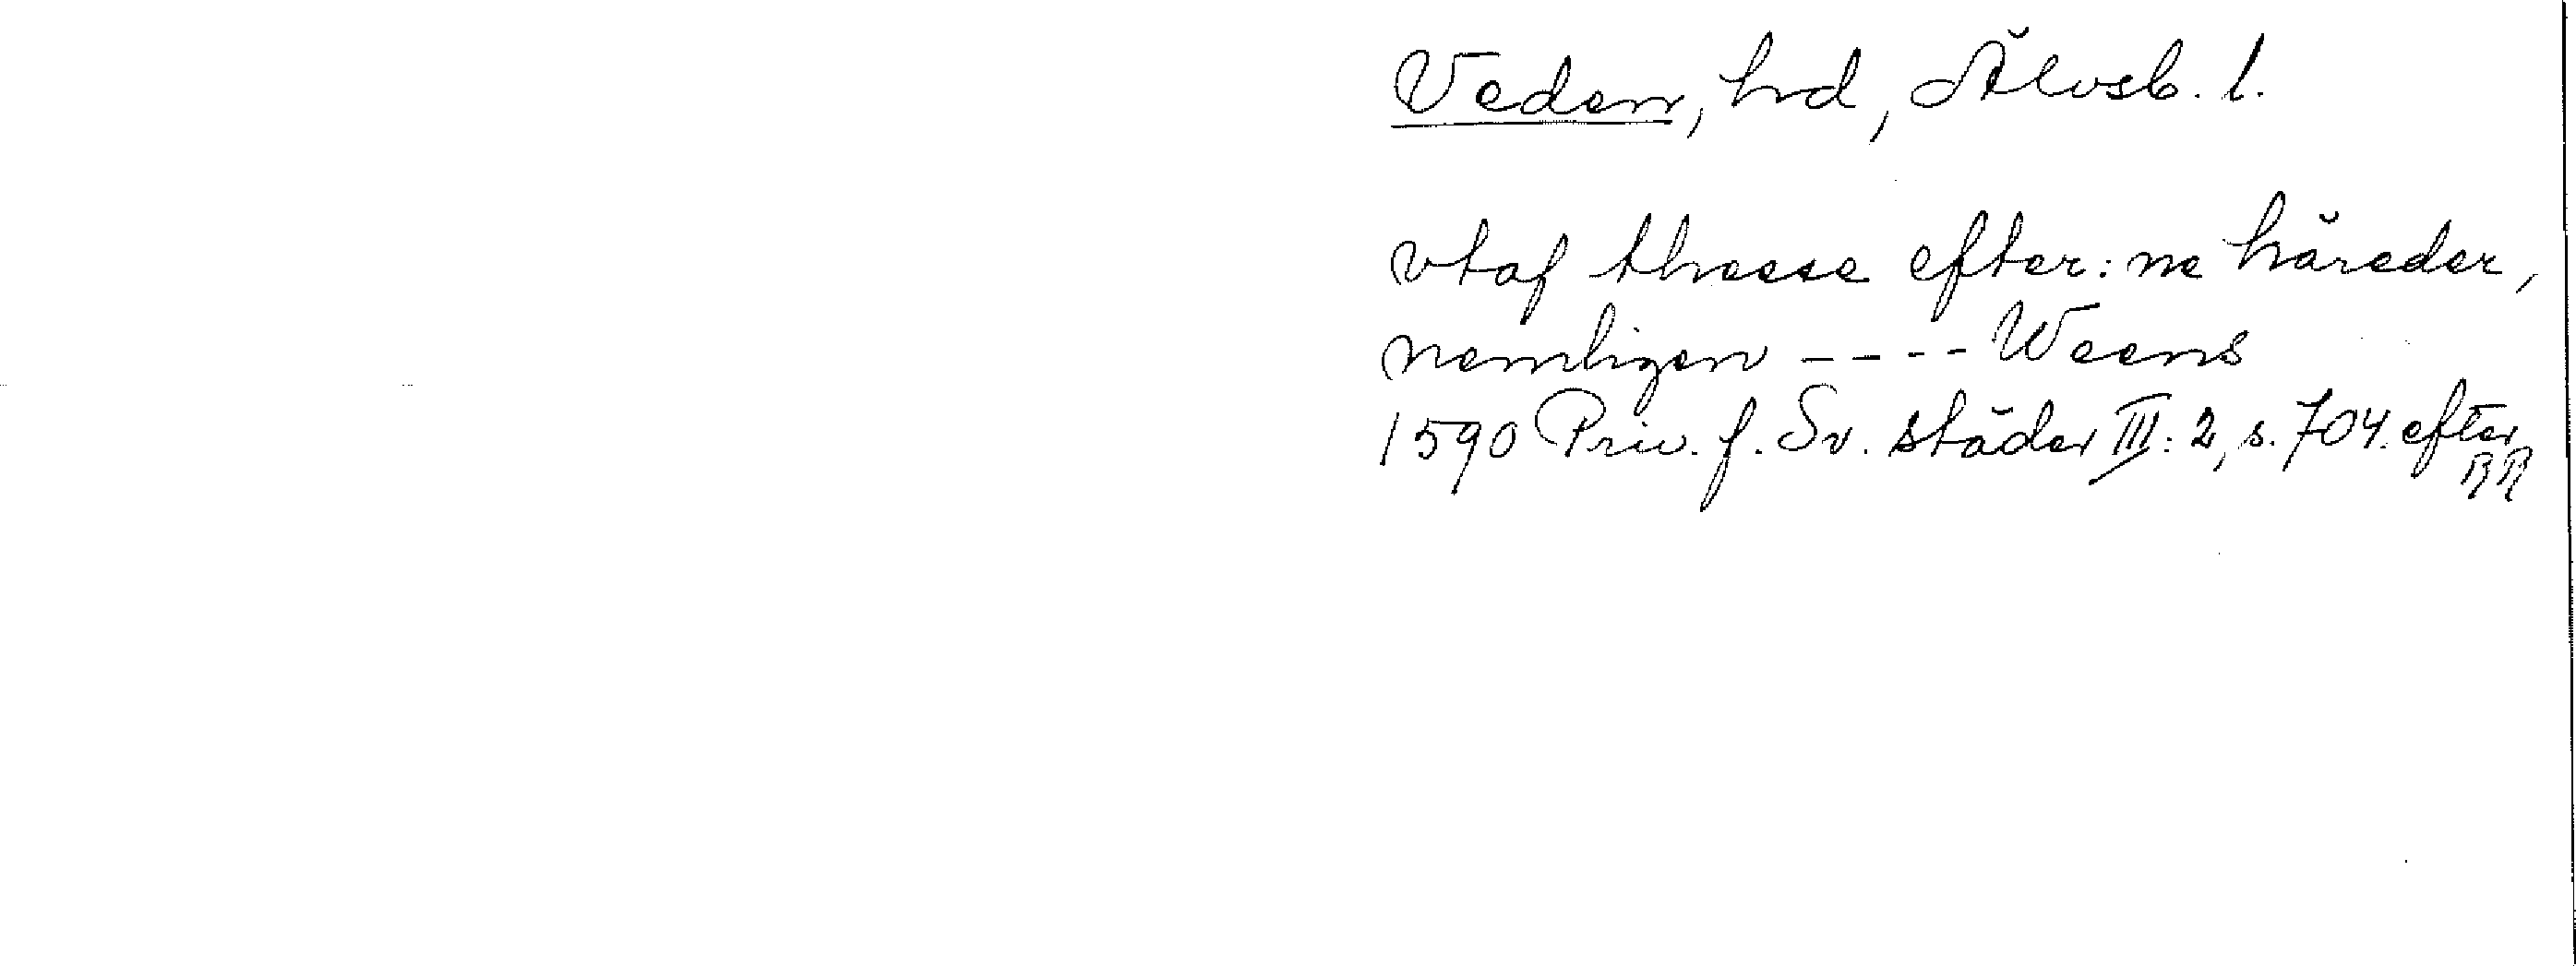 Veden, hd, Älvsb. l.
vtaf thesse efter:ne häreder,
nemligen ---- Weens
1590 Priv. f. Sv. städer III: 2, s. 704. efter
RR